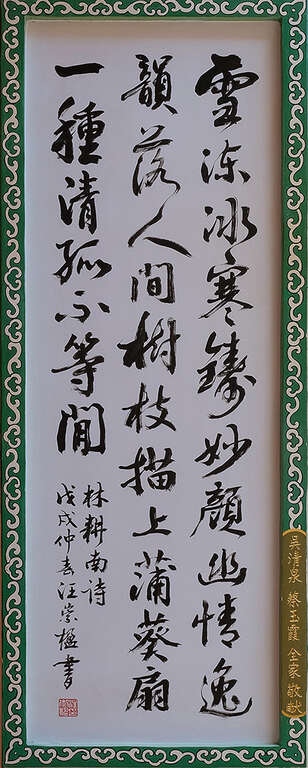 雪冻冰寒铸妙颜幽情逸
韻落人間樹枝描上蒲葵扇
一種清孤不等閒
林耕南诗
戊戌仲春汪崇楹書
吴清泉 蔡玉霞 全家 敬献